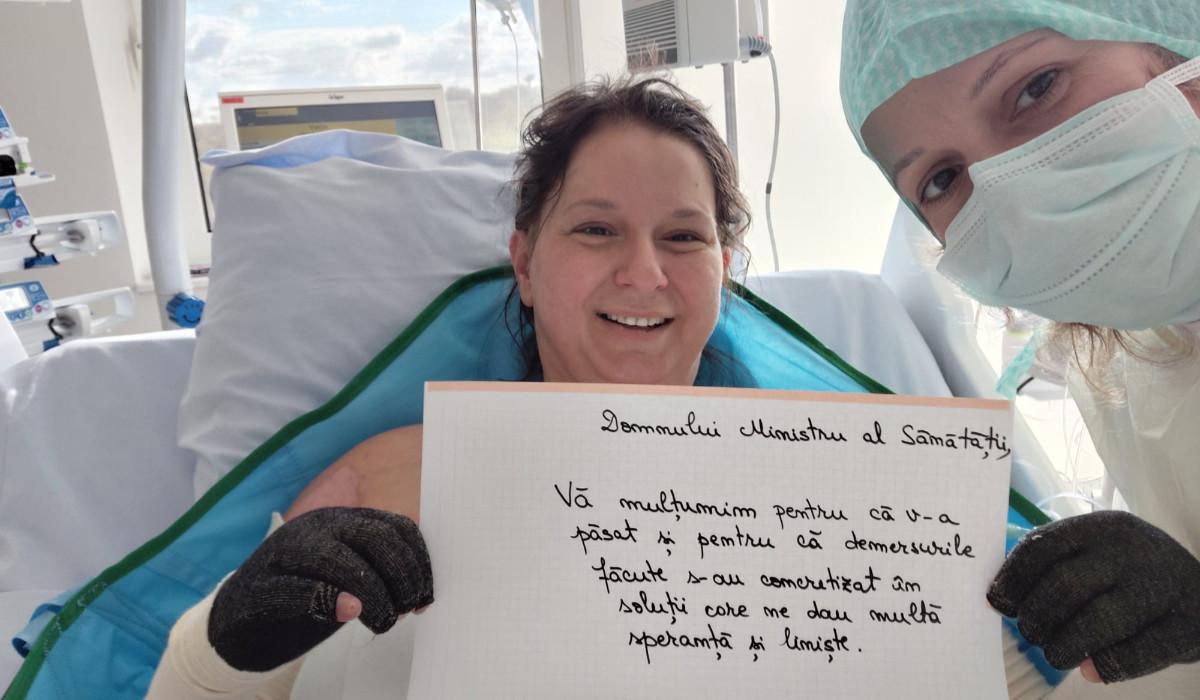 Domnului Ministru al Sănătății,
Vă mulțumim pentru că v-a
păsat și pentru că demersurile
făcute s-au concretizat în
soluții care ne dau multă
speranță și liniște.